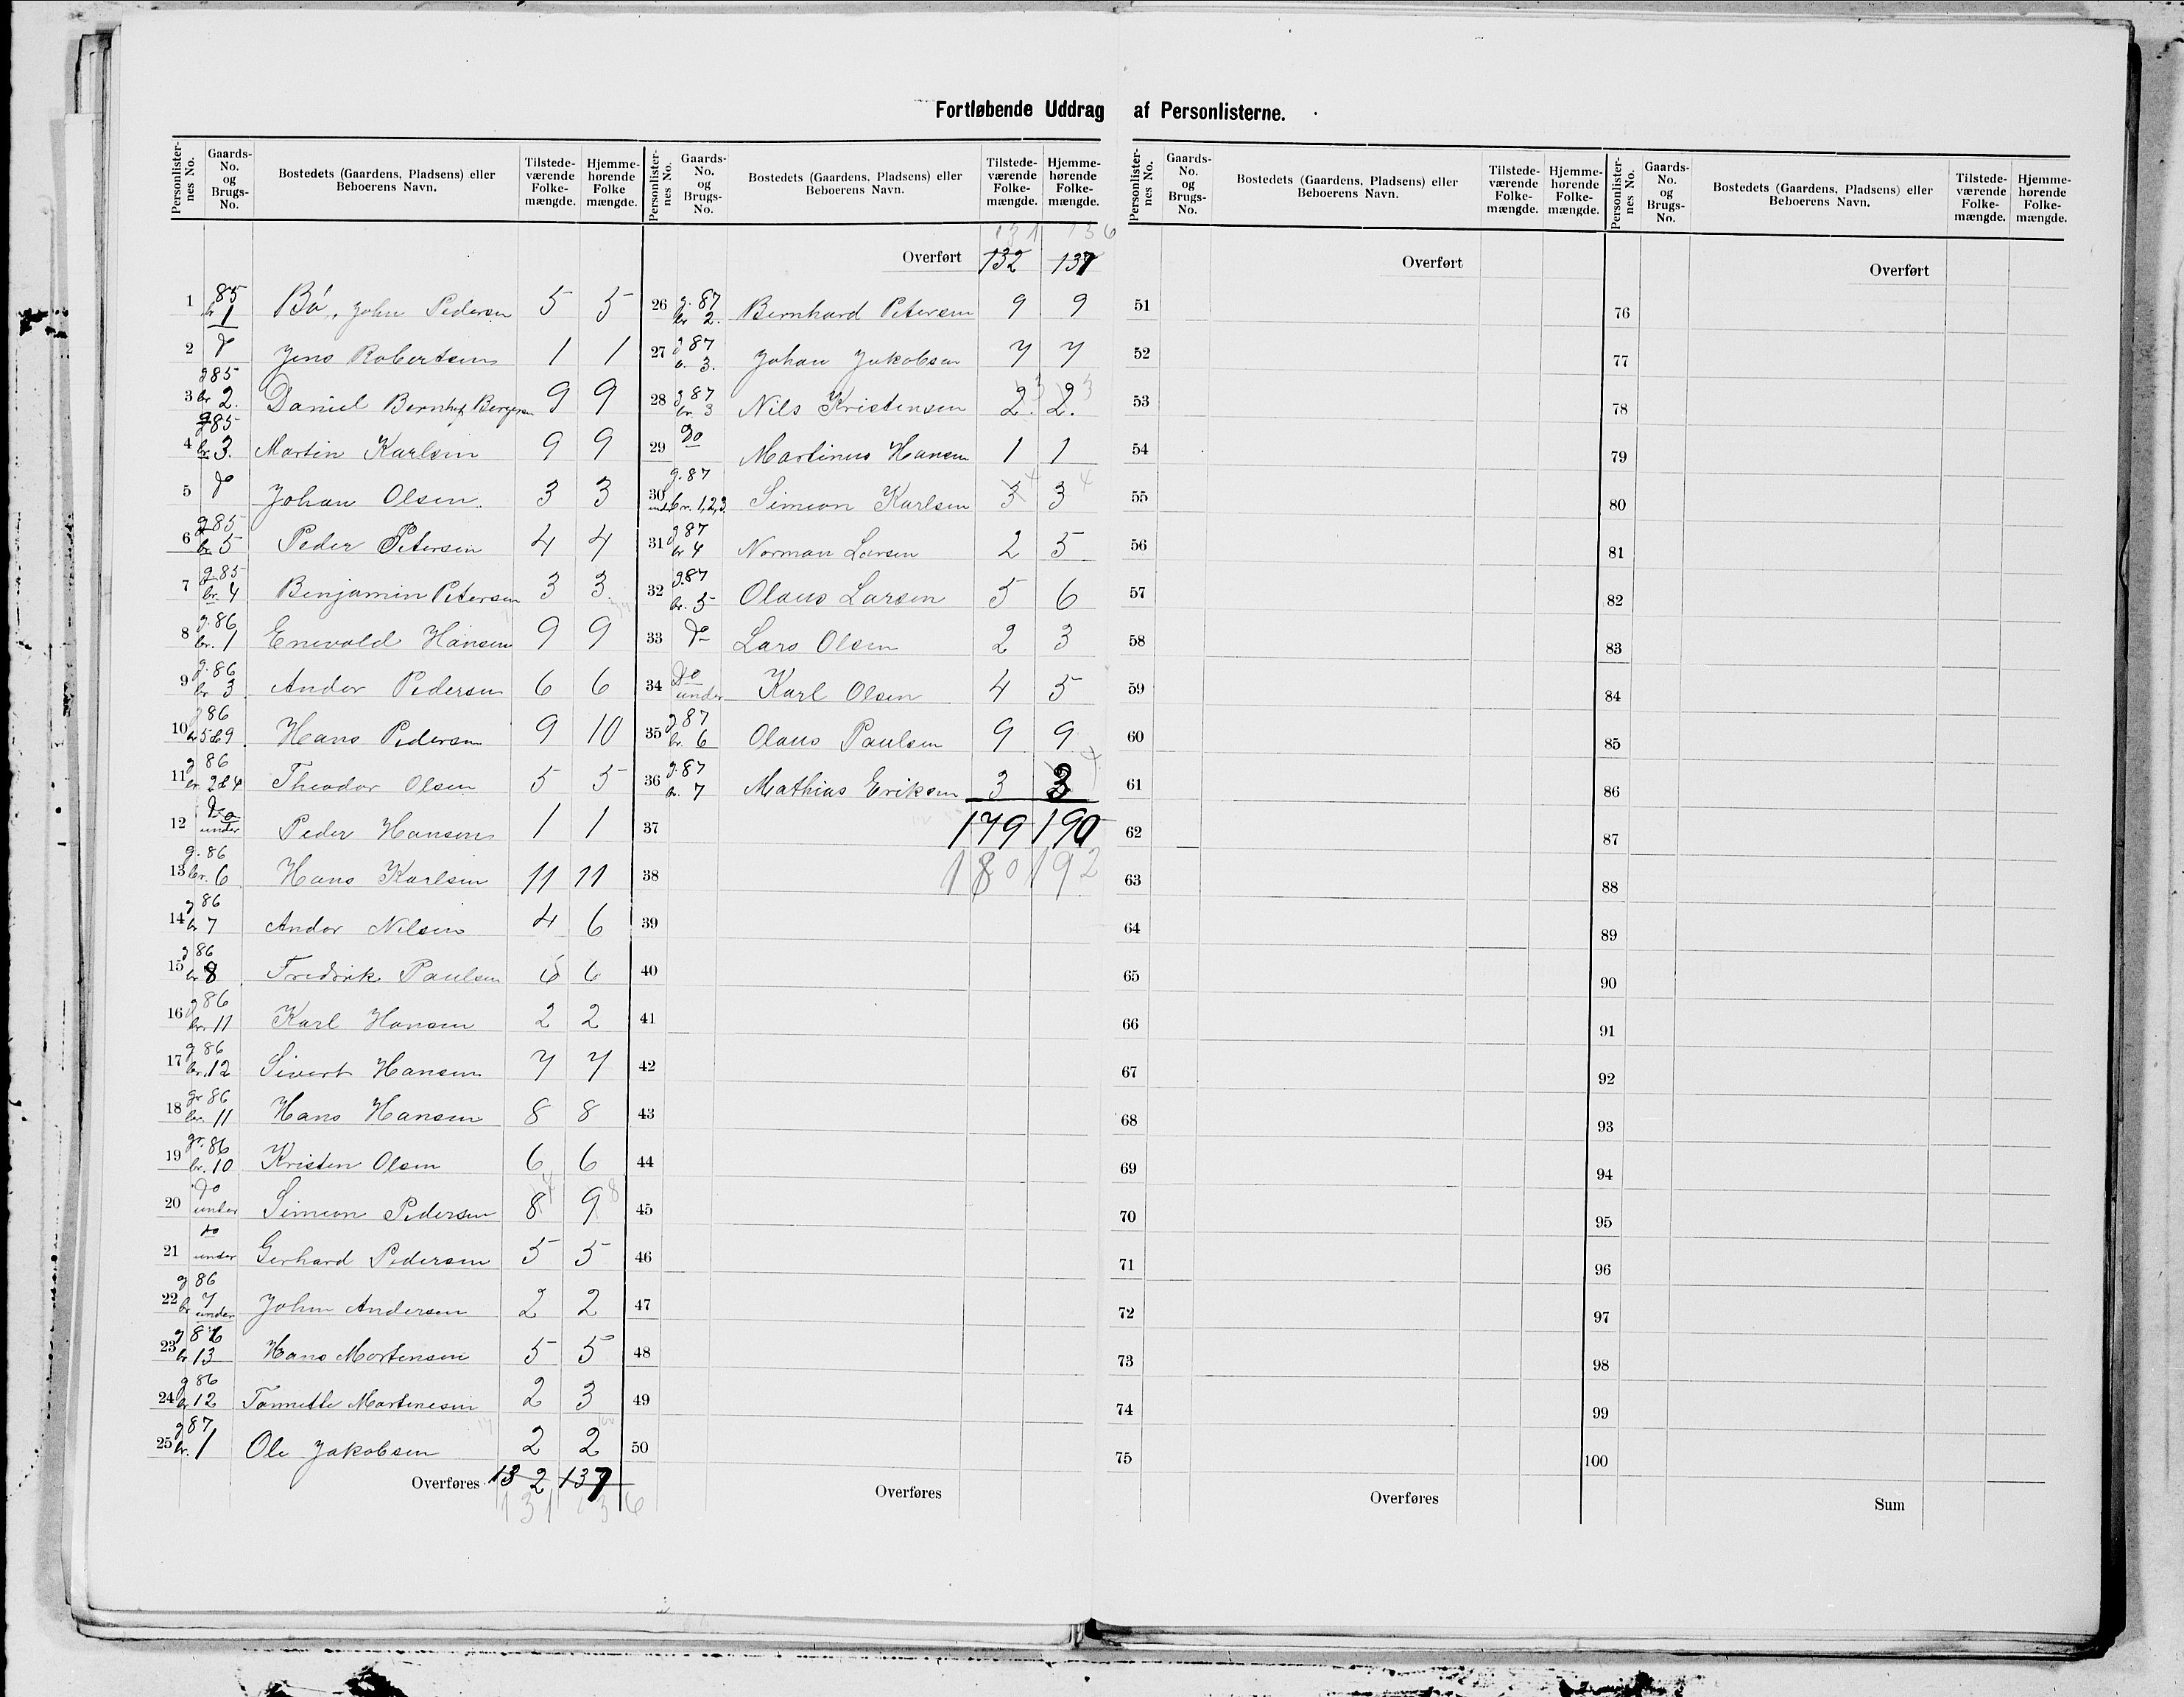 Fortløbende Uddrag af Personlisterne.
Personlister-nes No. | Gaards-No. og Brugs-No. | Bostedets (Gaardens, Pladsens) eller Beboerens Navn. | Tilstede-værende Folke-mængde. | Hjemme-hørende Folke mængde.
1 | 85 br 1 | Bø, John Pedersen | 5 | 5
2 | do | Jens Robertsen | 1 | 1
3 | g 85 br 2. | Daniel Bernhof Bergersen | 9 | 9
4 | g 85 br. 3. | Martin Karlsen | 9 | 9
5 | do | Johan Olsen. | 3 | 3
6 | g 85 br. 5 | Peder Petersen | 4 | 4
7 | g. 85 br. 4 | Benjamin Petersen | 3 | 3
8 | g. 86 br. 1 | Enevold Hansen | 9 | 9
9 | g. 86 br. 3 | Andor Pedersen | 6 | 6
10 | g 86 br 5 & 9. | Hans Pedersen | 9 | 10
11 | g 86 br. 2 & 4 | Theodor Olsen | 5 | 5
12 | Do under | Peder Hansen | 1 | 1
13 | g. 86 br. 6 | Hans Karlsen | 11 | 11
14 | g 86 br 7 | Andor Nilsen | 4 | 6
15 | g 86 br 8 | Fredrik Paulsen | 6 | 6
16 | g 86 br. 11 | Karl Hansen | 2 | 2
17 | g 86 br. 12 | Sivert Hansen | 7 | 7
18 | gr 86 br. 11 | Hans Hansen | 8 | 8
19 | gr. 86 br. 10 | Kristen Olsen | 6 | 6
20 | do under | Simeon Pedersen | 8 | 9 8
21 | do under | Gerhard Pedersen | 5 | 5
22 | g 86 br 7 under | John Andersen | 2 | 2
23 | g 86 br 13 | Hans Mortensen | 5 | 5
24 | g 86 br 12 | Tannette Martinesen | 2 | 3
25 | g 87 br. 1 | Ole Jakobsen | 2 | 2
Overføres 132 137
131 136
Personlister-nes No. | Gaards-No. og Brugs-No. | Bostedets (Gaardens, Pladsens) eller Beboerens Navn. | Tilstede-værende Folke-mængde. | Hjemme-hørende Folke-mængde.
131 136
Overført 132 137
26 | g. 87 br 2. | Bernhard Petersen | 9 | 9
27 | g 87 b. 3. | Johan Jakobsen | 7 | 7
28 | g 87 br. 3 | Nils Kristensen | 2. 3 | 2. 3
29 | Do | Martinus Hansen | 1 | 1
30 | g. 87 under br. 1, 2, 3. | Simeon Karlsen | 3 4 | 3 4
31 | g 87 br 4 | Norman Larsen | 2 | 5
32 | g. 87 br. 5 | Olaus Larsen | 5 | 6
33 | do | Lars Olsen | 2 | 3
34 | Do under | Karl Olsen | 4 | 5
35 | g. 87 br. 6 | Olaus Paulsen | 9 | 9
36 | g. 87 br. 7 | Mathias Eriksen | 3 | 3
37 | 179 | 190
38 | 180 | 192
39
40
41
42
43
44
45
46
47
48
49
50
Overføres
Personlister-nes No. | Gaards-No. og Brugs-No. | Bostedets (Gaardens, Pladsens) eller Beboerens Navn. | Tilstede-værende Folke-mængde. | Hjemme-hørende Folke-mængde.
Overført
51
52
53
54
55
56
57
58
59
60
61
62
63
64
65
66
67
68
69
70
71
72
73
74
75
Overføres
Personlister-nes No. | Gaards-No. og Brugs-No. | Bostedets (Gaardens, Pladsens) eller Beboerens Navn. | Tilstede-værende Folke-mængde. | Hjemme-hørende Folke-mængde.
Overført
76
77
78
79
80
81
82
83
84
85
86
87
88
89
90
91
92
93
94
95
96
97
98
99
100
Sum